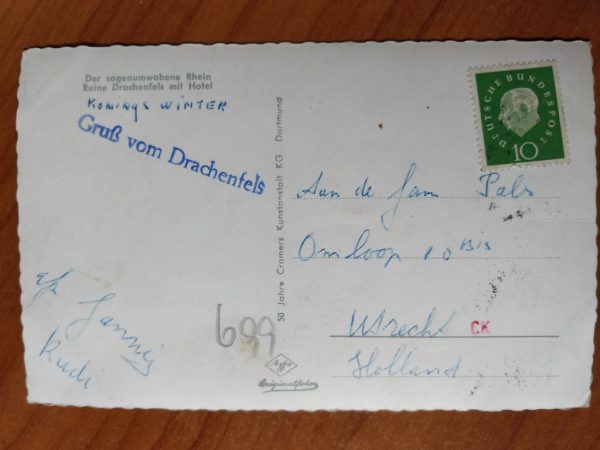 Der sagenumwobene Rhein
Ruine Drachenfels mit Hotel
KONINGS WINTER
Gruß vom Drachenfels
50 Jahre Cramers Kunstanstalt KG Dortmund
DEUTSCHE BUNDESPOST
10
Aan de fam Pals
Omloop 10 BIS
Utrecht
CK
Holland
Rudi
699
Agfa
Originalfoto